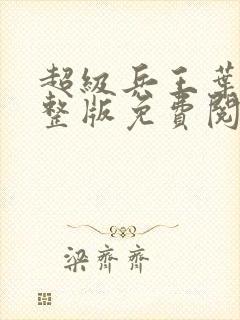 超级兵王葉
整版免費閱
梁齊齊